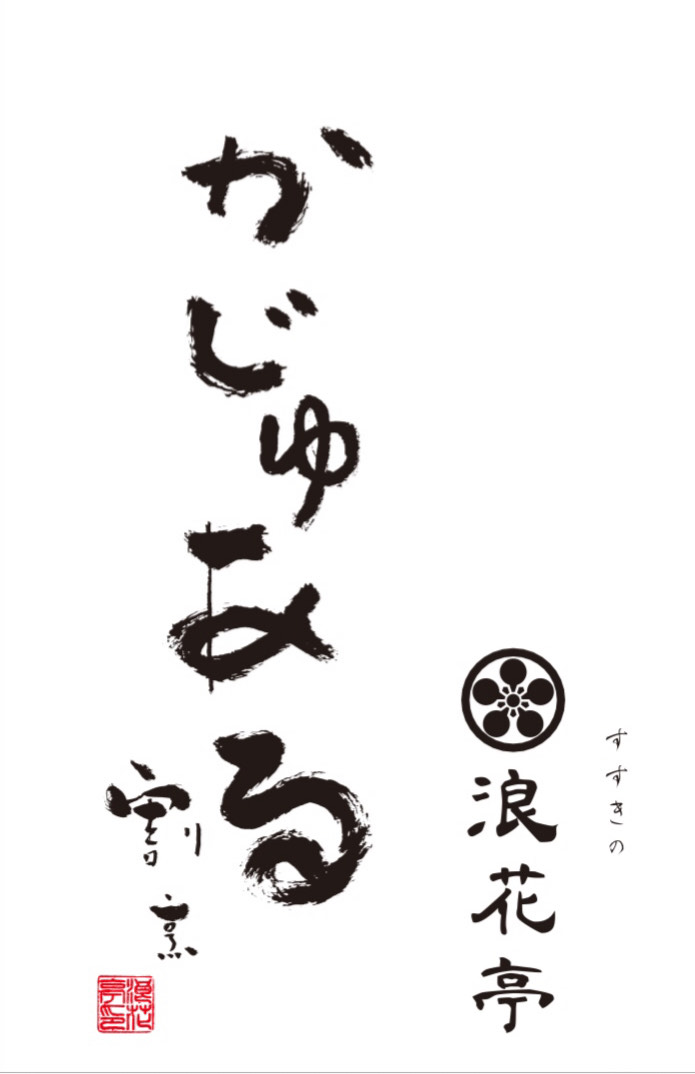 すすきの
浪花亭
かじゅある
割烹
浪花亭印